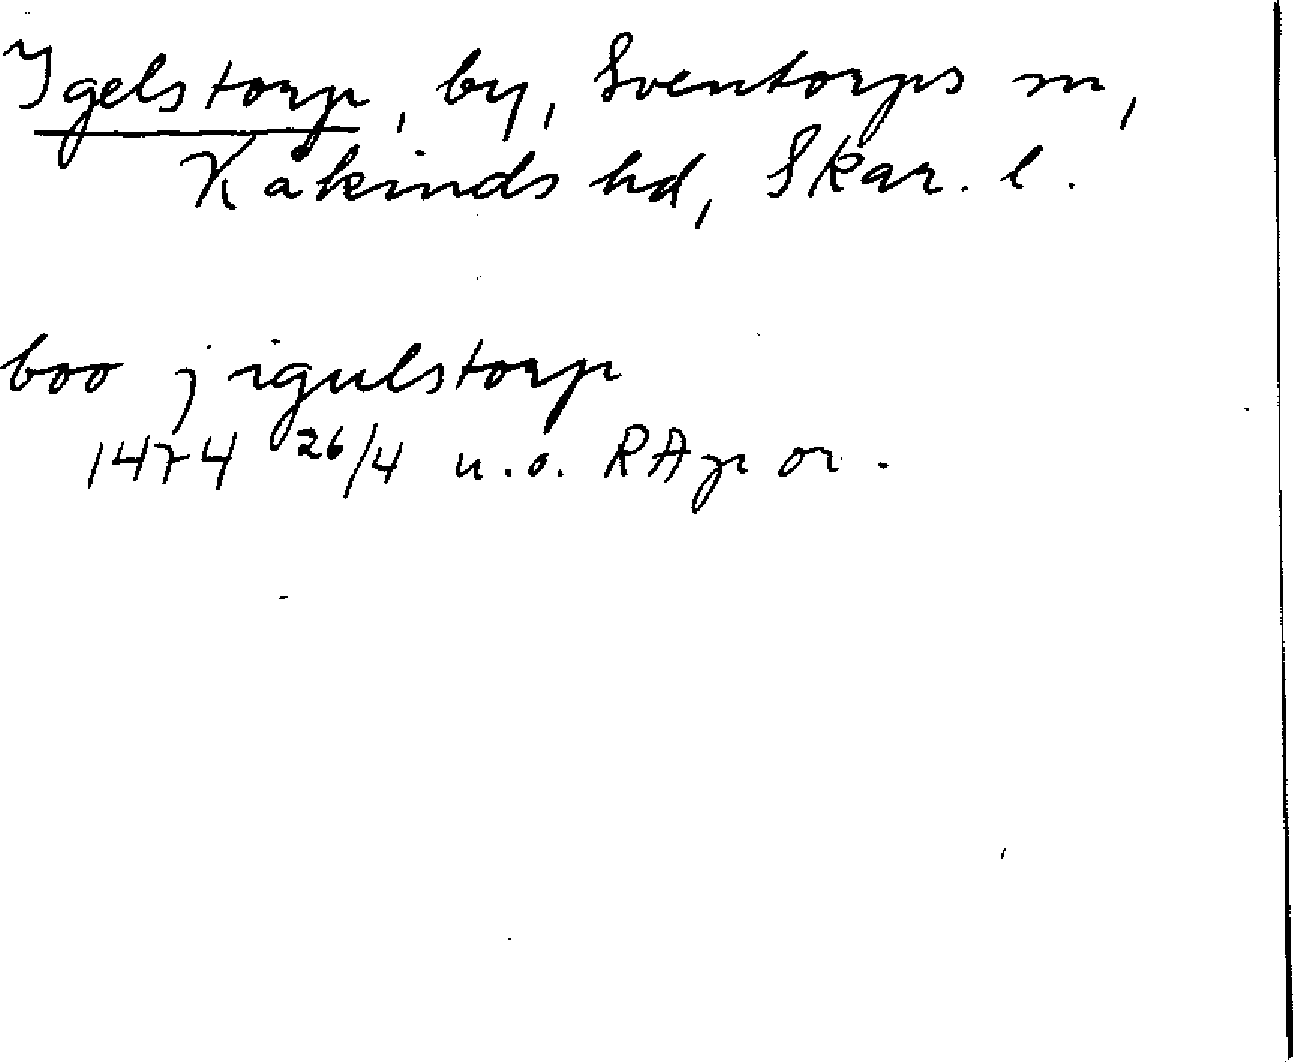 Igelstorp, by, Sventorps sn,
Kåkinds hd, Skar. l.
boo j igulstorp
1474 26/4 u.o. RAp or.